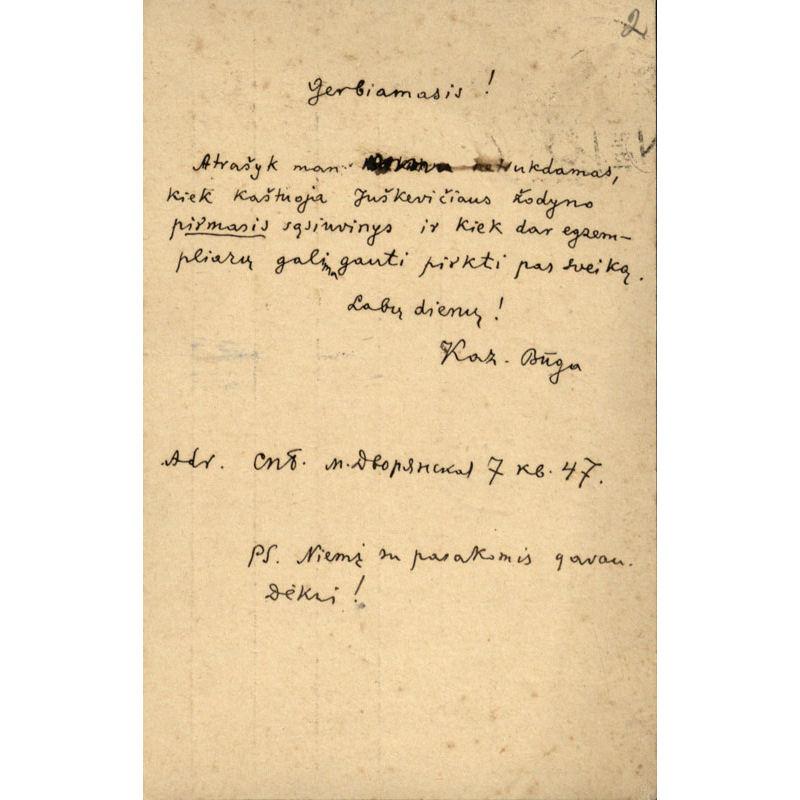 2
Gerbiamasis!
Atrašyk man netrukdamas,
kiek kaštuoja Juškevičiaus žodyno
pirmasis sąsiuvinys ir kiek dar egzem-
pliarų galima gauti pirkti pas sveiką.
Labų dienų!
Kaz. Būga
Adr. СПб. М. Дворянская 7 кв. 47.
PS. Niemį su pasakomis gavau.
Dėkui!